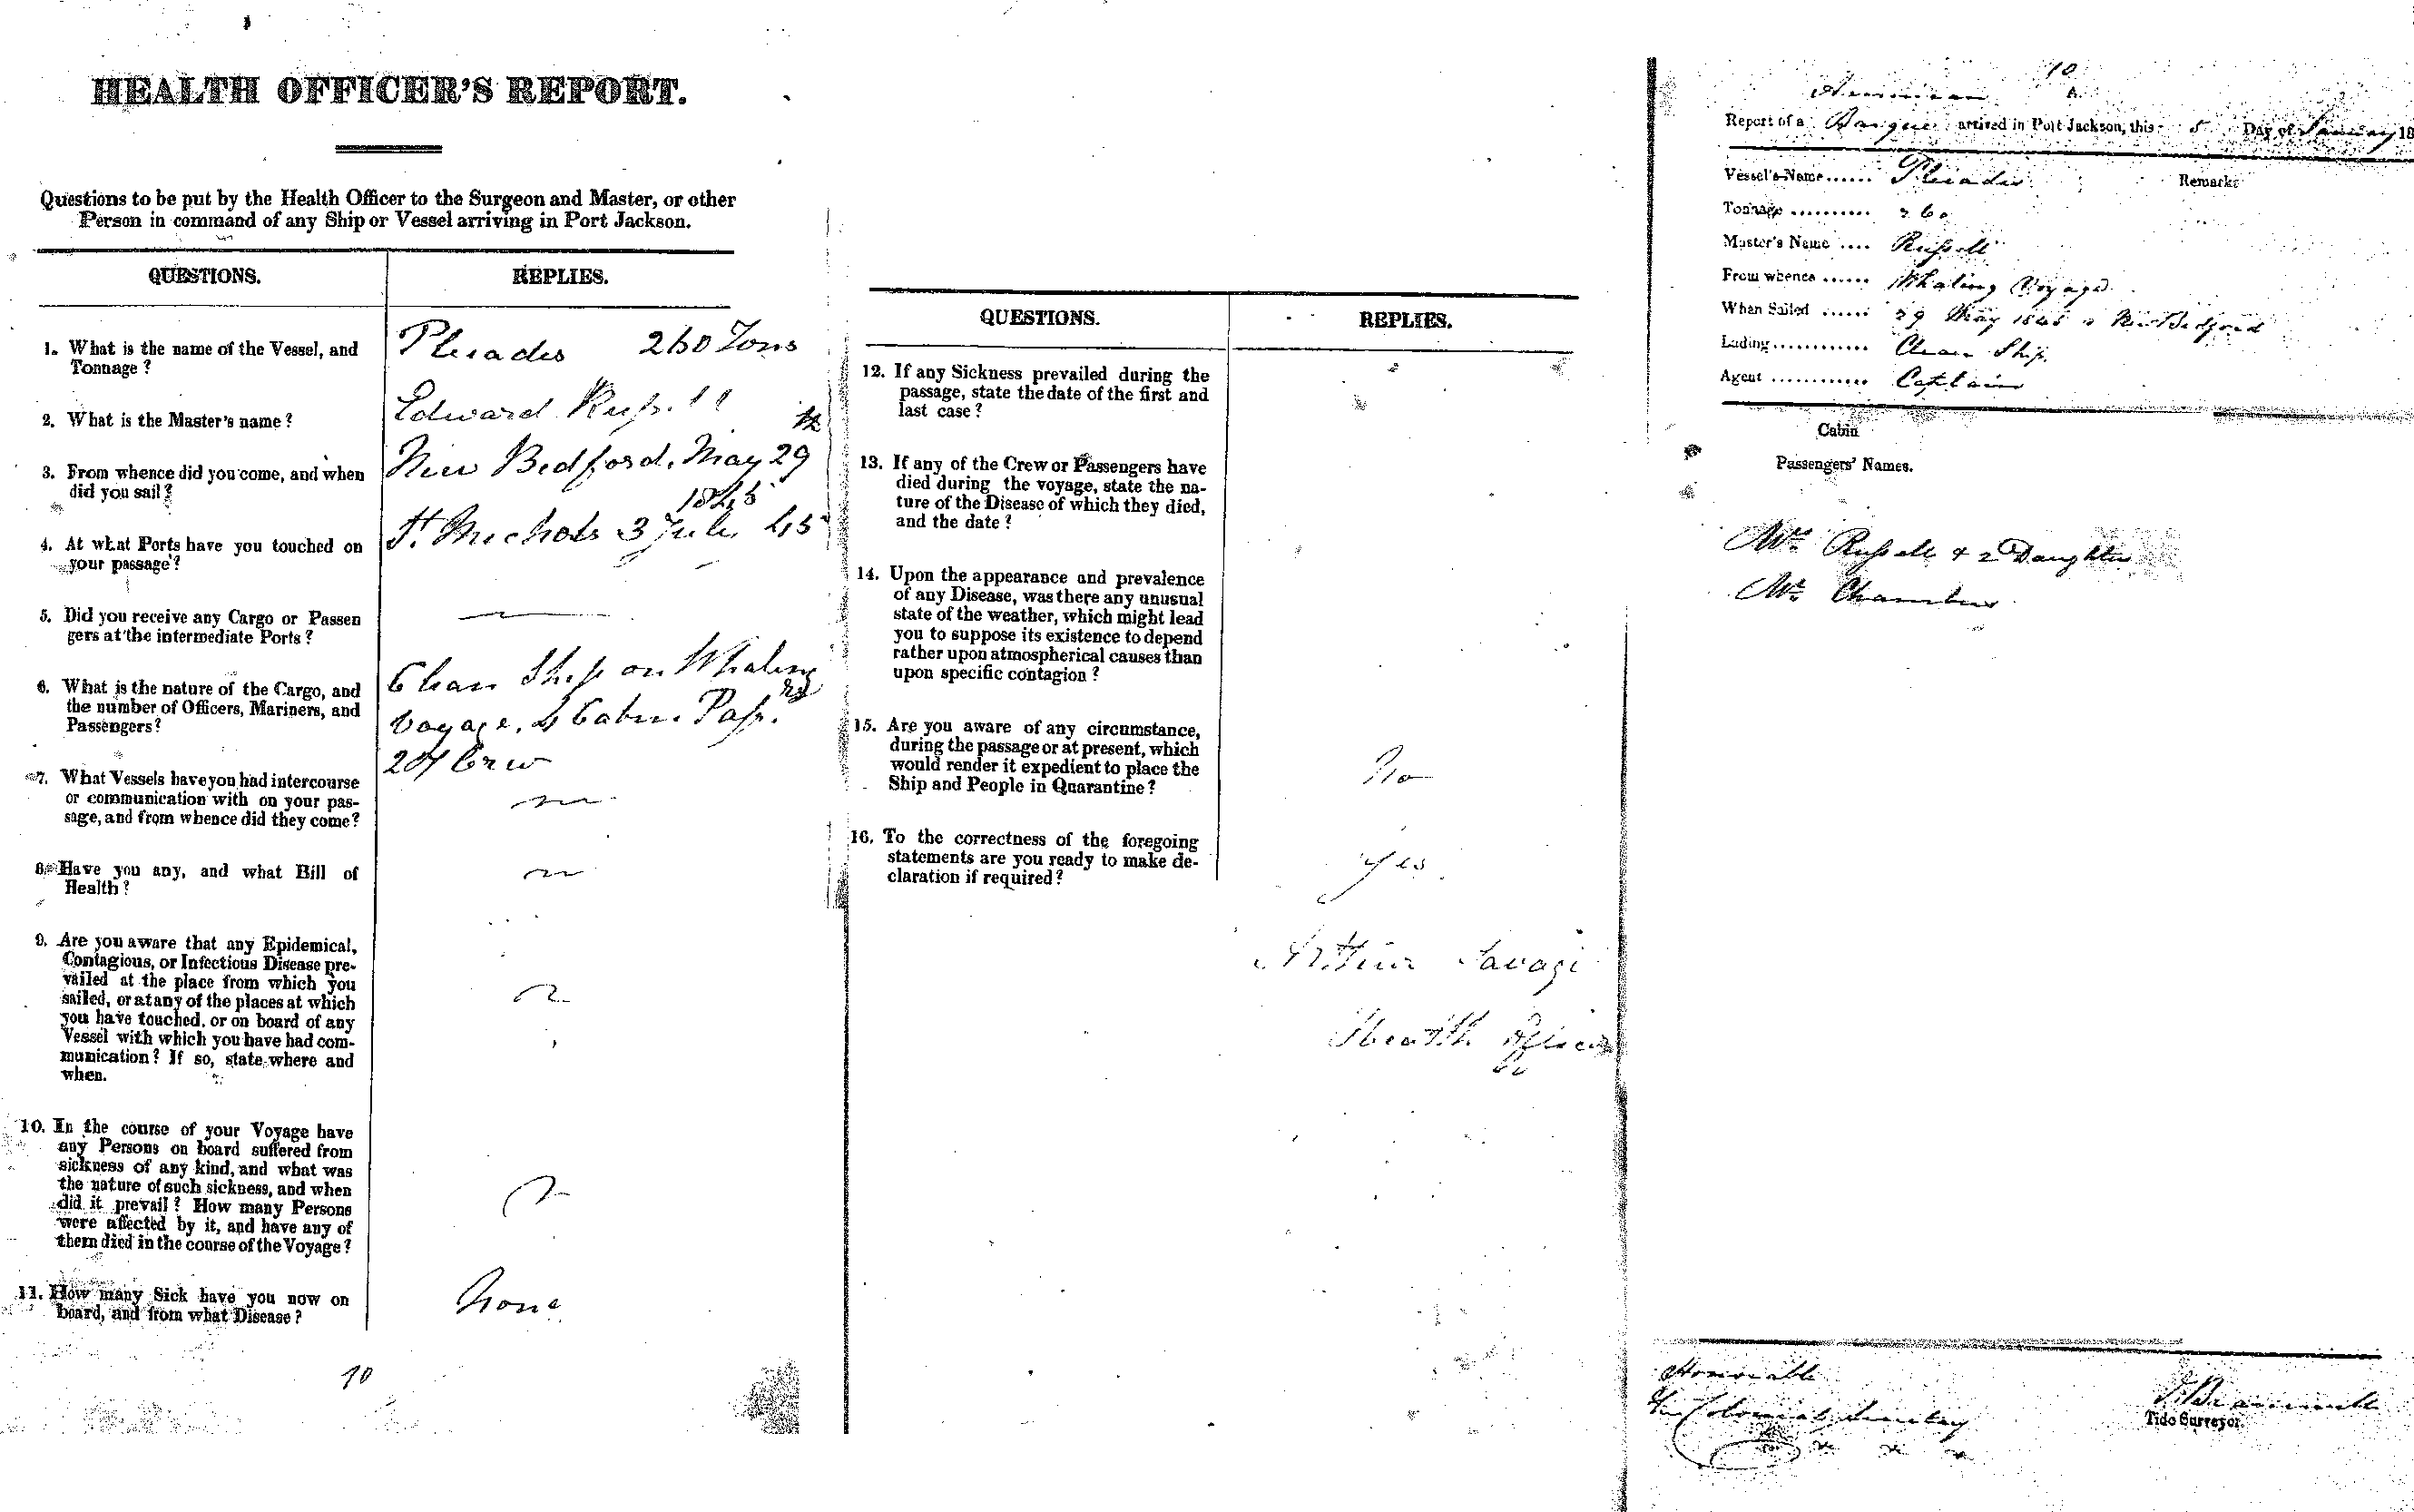 HEALTH OFFICER'S REPORT.
Questions to be put by the Health Officer to the Surgeon and Master, or other
Person in command of any Ship or Vessel arriving in Port Jackson.
QUESTIONS. REPLIES.
1. What is the name of the Vessel, and
Tonnage?
Pleiades 260 Tons
2. What is the Master's name?
Edward Russell
3. From whence did you come, and when
did you sail?
New Bedford, May 29
1845
4. At what Ports have you touched on
your passage?
St. Michals 3 July 45
5. Did you receive any Cargo or Passen
gers at the intermediate Ports?
6. What is the nature of the Cargo, and
the number of Officers, Mariners, and
Passengers?
Clean Ship on Whaling
Voyage. 4 Cabin Passrs
Crew
7. What Vessels have you had intercourse
or communication with on your pas-
sage, and from whence did they come?
8. Have you any, and what Bill of
Health?
9. Are you aware that any Epidemical,
Contagious, or Infectious Disease pre-
vailed at the place from which you
sailed, or at any of the places at which
you have touched, or on board of any
Vessel with which you have had com-
munication? If so, state where and
when.
10. In the course of your Voyage have
any Persons on board suffered from
sickness of any kind, and what was
the nature of such sickness, and when
did it prevail? How many Persons
were affected by it, and have any of
them died in the course of the Voyage?
11. How many Sick have you now on
board, and from what Disease?
None
10
QUESTIONS. REPLIES.
12. If any Sickness prevailed during the
passage, state the date of the first and
last case?
13. If any of the Crew or Passengers have
died during the voyage, state the na-
ture of the Disease of which they died,
and the date?
14. Upon the appearance and prevalence
of any Disease, was there any unusual
state of the weather, which might lead
you to suppose its existence to depend
rather upon atmospherical causes than
upon specific contagion?
15. Are you aware of any circumstance,
during the passage or at present, which
would render it expedient to place the
Ship and People in Quarantine?
No
16. To the correctness of the foregoing
statements are you ready to make de-
claration if required?
Yes
Arthur Savage
Health Officer
10
American
Report of a Barque arrived in Port Jackson, this 5 Day of January 18
Vessel's Name ...... Pleiades Remarks
Tonnage .......... 260
Master's Name .... Russell
From whence ...... Whaling Voyage
When Sailed ...... 29 May 1845 New Bedford
Lading ............ Clean Ship
Agent ............ Captain
Cabin
Passengers' Names.
Mrs Russell & 2 Daughters
Mr Chambers
Honorable
The Colonial Secretary
Tide Surveyor.